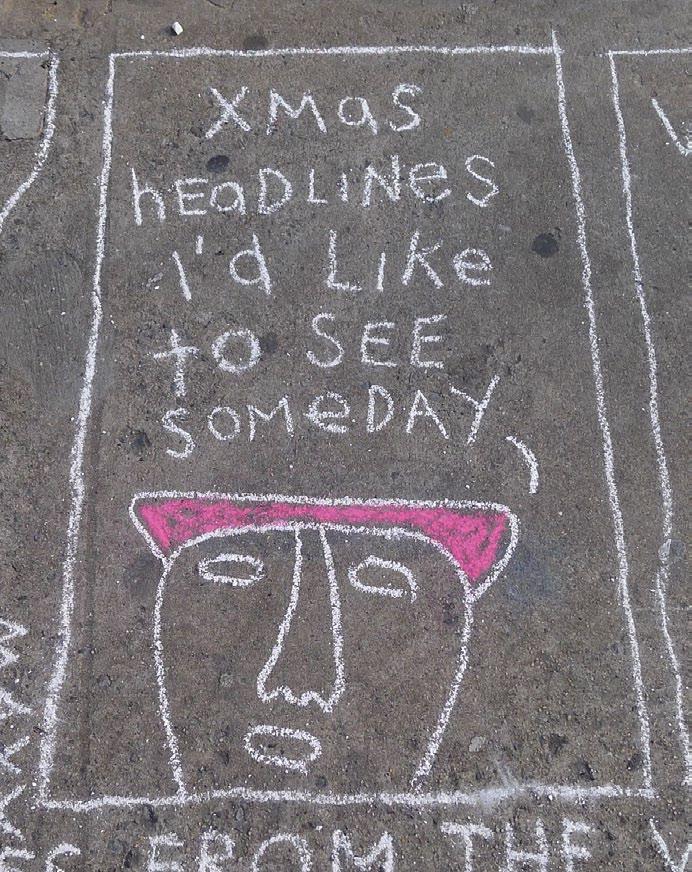 xmas
hEaDLiNes
I'd Like
to SEE
SOMeDAY
FROM THE